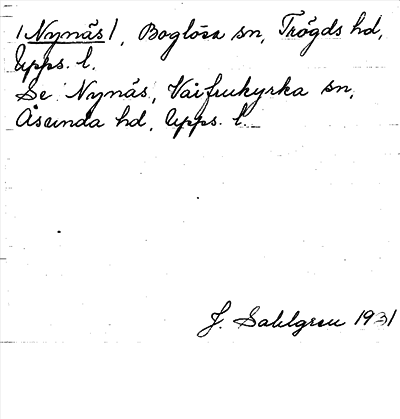 /Nynäs/, Boglösa sn, Trögds hd,
Upps. l.
Se Nynäs, Vårfrukyrka sn,
Åsunda hd, Upps. l.
J. Sahlgren 1931